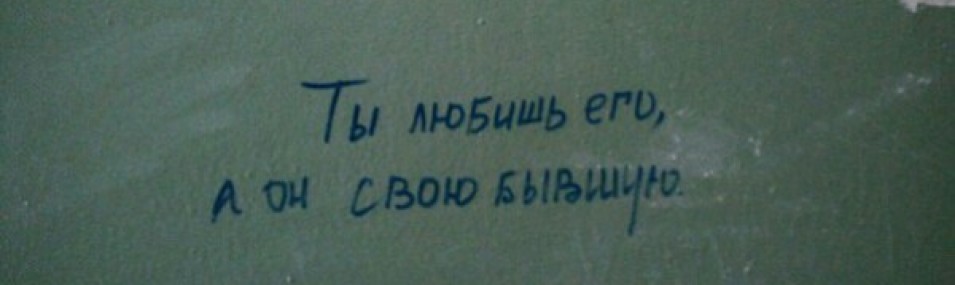 Ты любишь его,
а он свою бывшую.